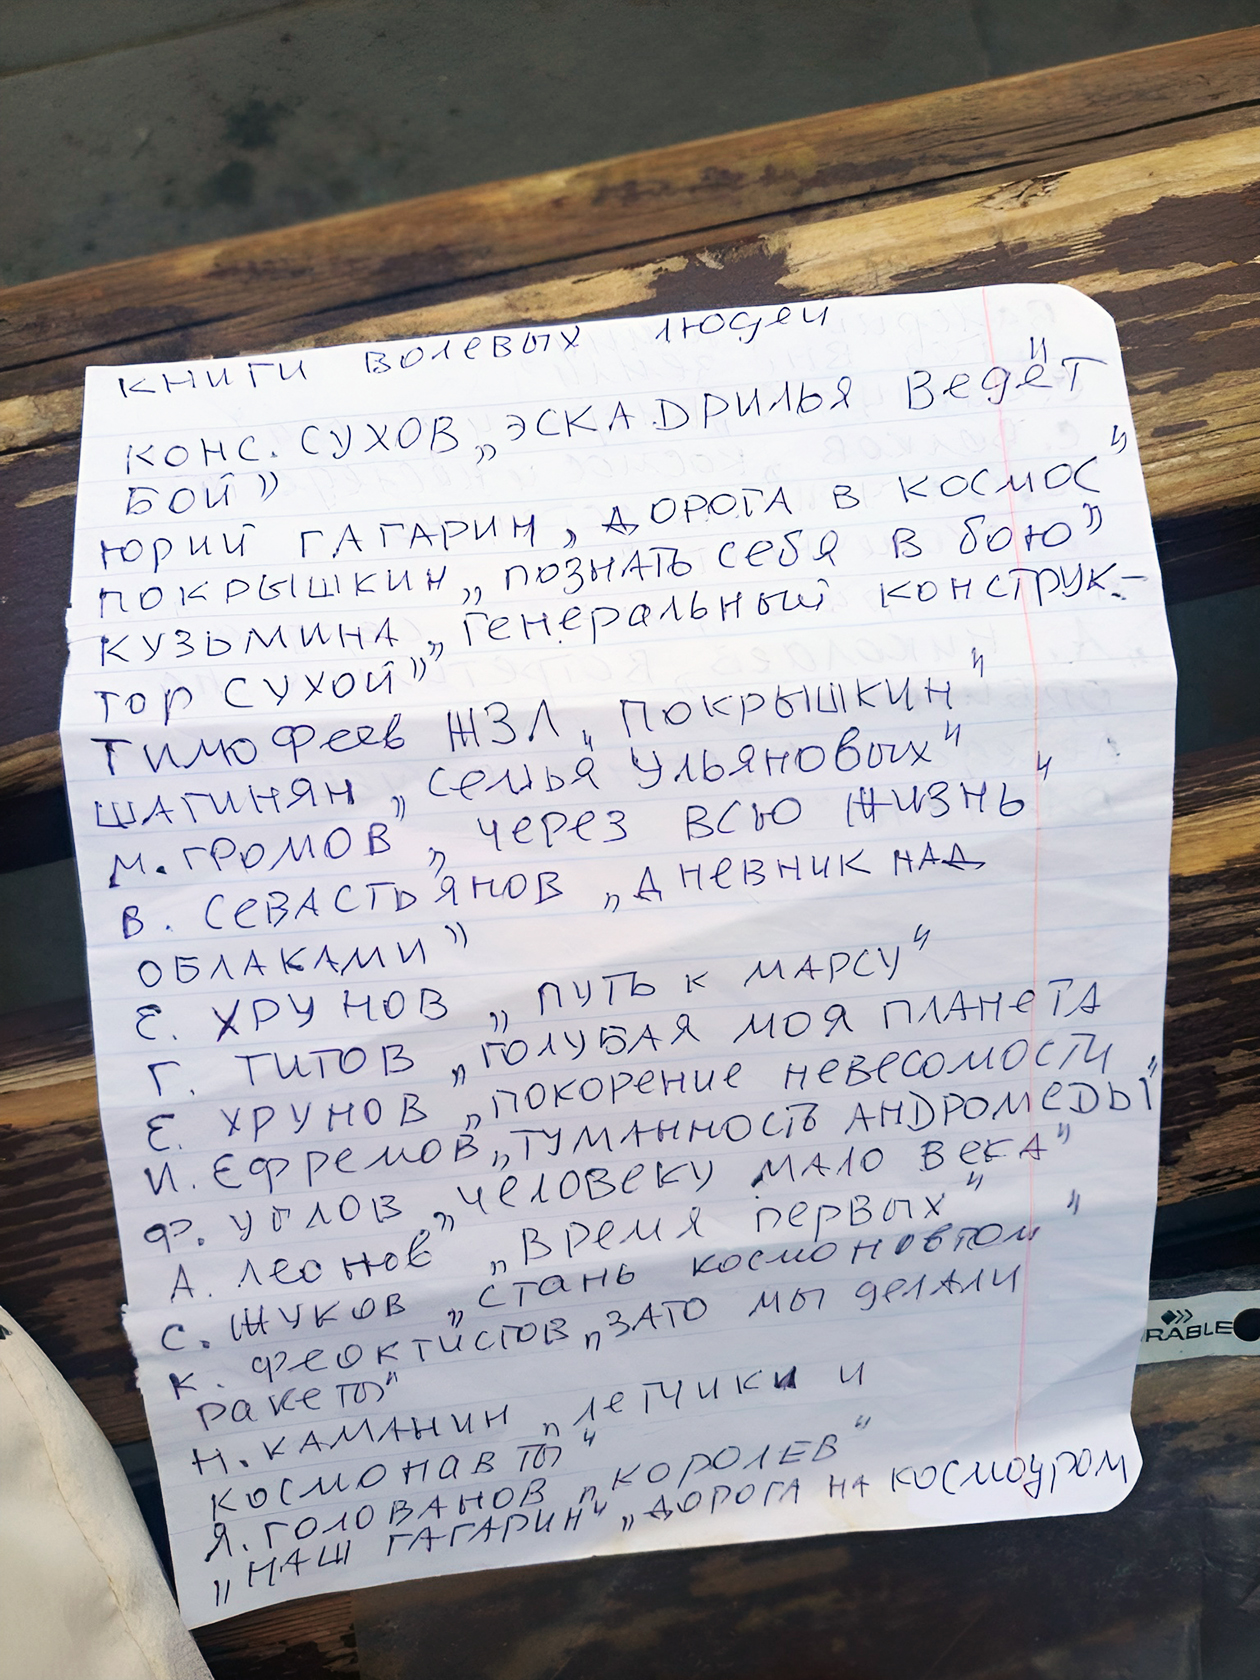 книги волевых людей
КОНС. СУХОВ „ЭСКАДРИЛЬЯ ВедёТ
БОЙ”
ЮРИЙ ГАГАРИН „ДОРОГА В КОСМОС”
ПОКРЫШКИН „ПОЗНАТЬ СЕБЯ В бОЮ”
КУЗЬМИНА „Генеральный конструк-
тор СУХОЙ”
ТИМОФеев ЖЗЛ „ПОКРЫШКИН”
ШАГИНЯН „Семья Ульяновых”
М. ГРОМОВ „через ВСЮ ЖИЗНЬ”
В. СеВАСТЬЯНОВ „ДНевНИК НАД
ОБЛАКАМИ”
Е. ХРУНОВ „ПУТЬ К МАРСУ”
Г. ТИТОВ „ГОЛУБАЯ МОЯ ПЛАНеТА
Е. ХРУНОВ „ПОКОРЕНИЕ НЕВЕСОМОСТИ
И. ЕФРЕМОВ „ТУМАННОСТЬ АНДРОМеДЫ”
Ф. УГЛОВ „ЧЕЛОВЕКУ МАЛО ВеКА”
А. Леонов „Время первых”
С. ЖУКОВ „Стань космонавтом”
К. ФЕОКТИСТОВ „ЗАТО МЫ делали
ракеты”
Н. КАМАНИН „летчики и
космонавты”
Я. ГОЛОВАНОВ „КОРОЛЕВ”
„НАШ ГАГАРИН” „ДОРОГА НА КОСМОДРОМ
RABLE